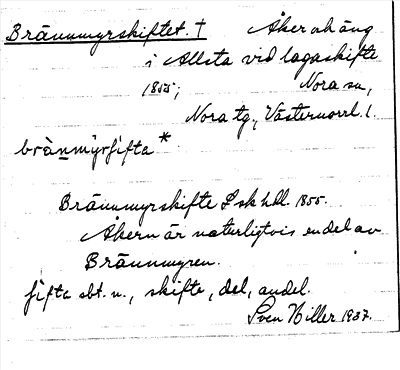 Brännmyrskiftet. † Åker och äng
i Allsta vid lagaskifte
1855; Nora sn,
Nora tg., Västernorrl. l.
brànmy̆rʃifta *
Brännmyrskifte L sk hdl. 1855.
Åkern är naturligtvis en del av
Brännmyren.
ʃifta sbt. n., skifte, del, andel.
Sven Hiller 1937.